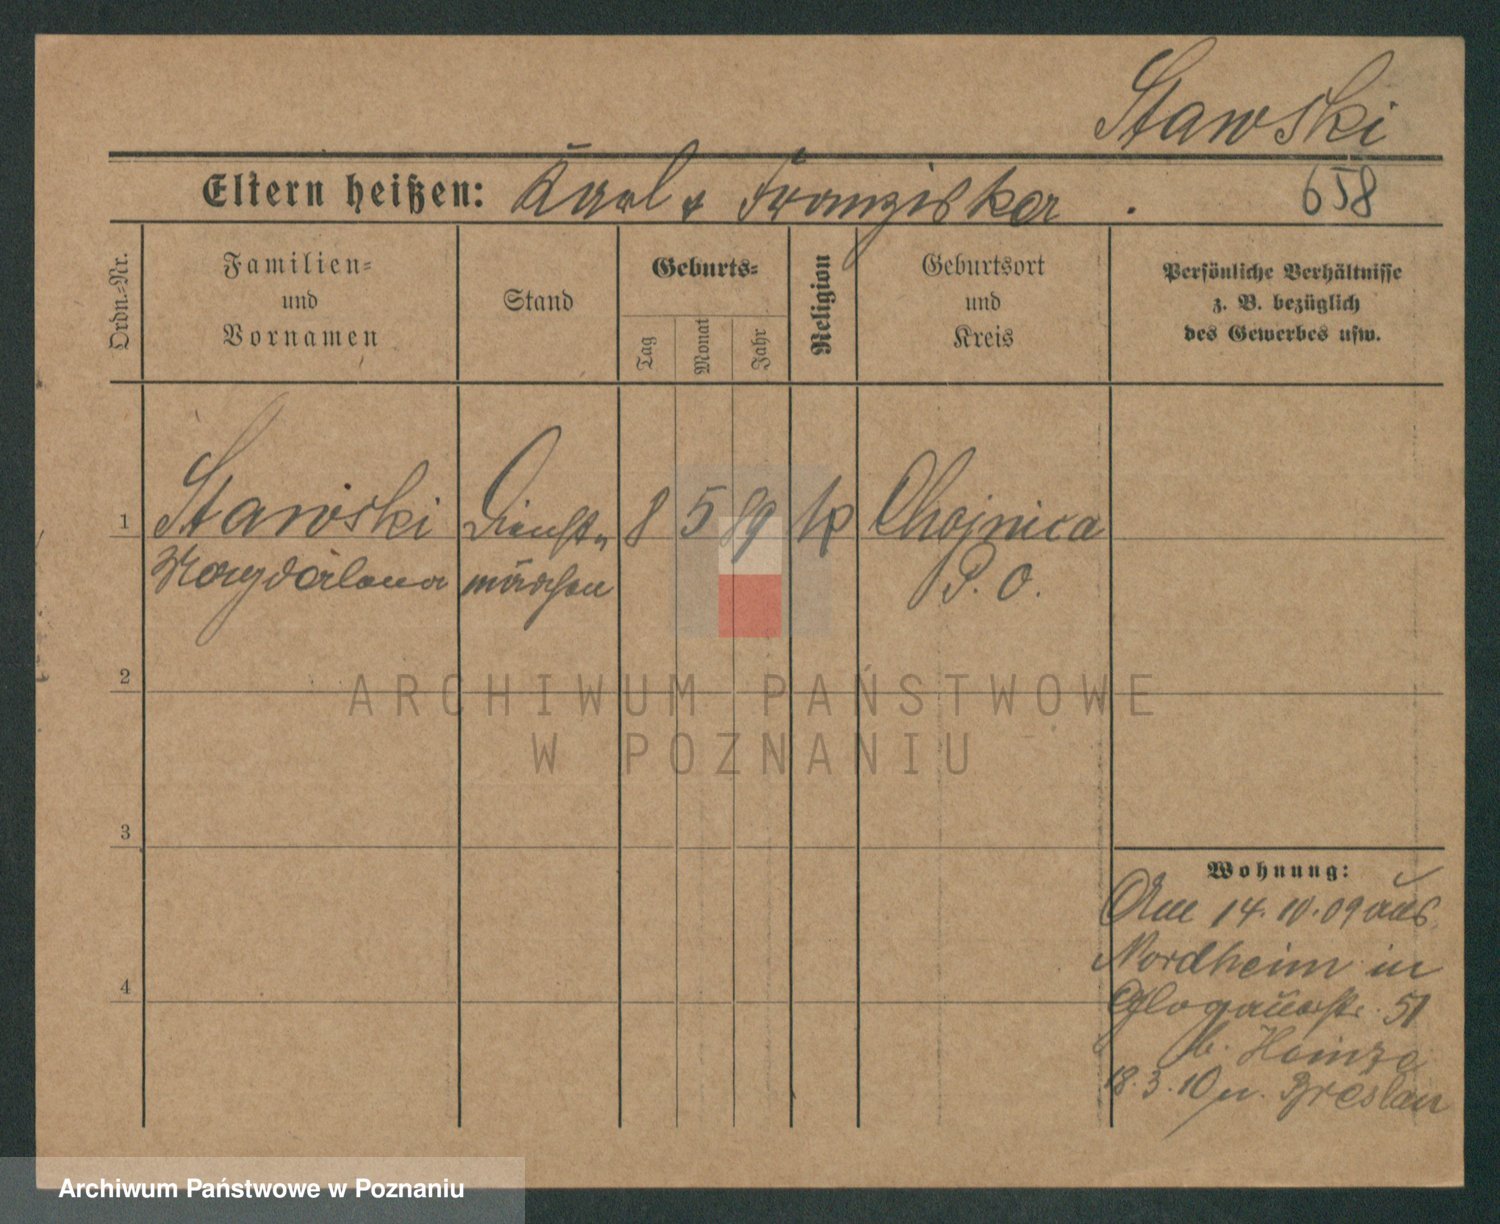 Stawski
Eltern heißen: Karl & Franziska.
658
Ordn.-Nr.
Familien-
und
Vornamen
Stand
Geburts-
Tag
Monat
Jahr
Religion
Geburtsort
und
Kreis
Persönliche Verhältnisse
z. B. bezüglich
des Gewerbes usw.
1
Stawski
Magdalena
Dienst-
mädchen
8 5 89
Chojnica
P. O.
2
ARCHIWUM PAŃSTWOWE
W POZNANIU
3
4
Wohnung:
Am 14.10.09 aus
Nordheim in
Glogauerstr. 51
b. Heinze
18.3.10 n. Breslau
Archiwum Państwowe w Poznaniu